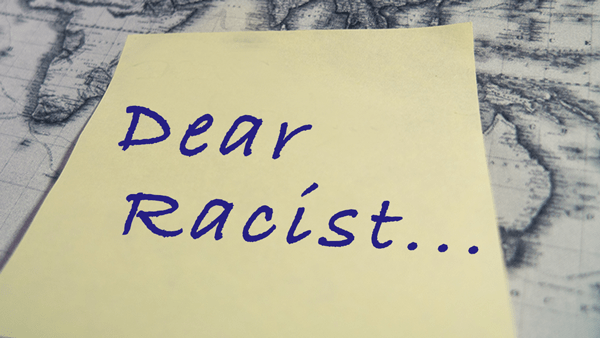 Dear
Racist...